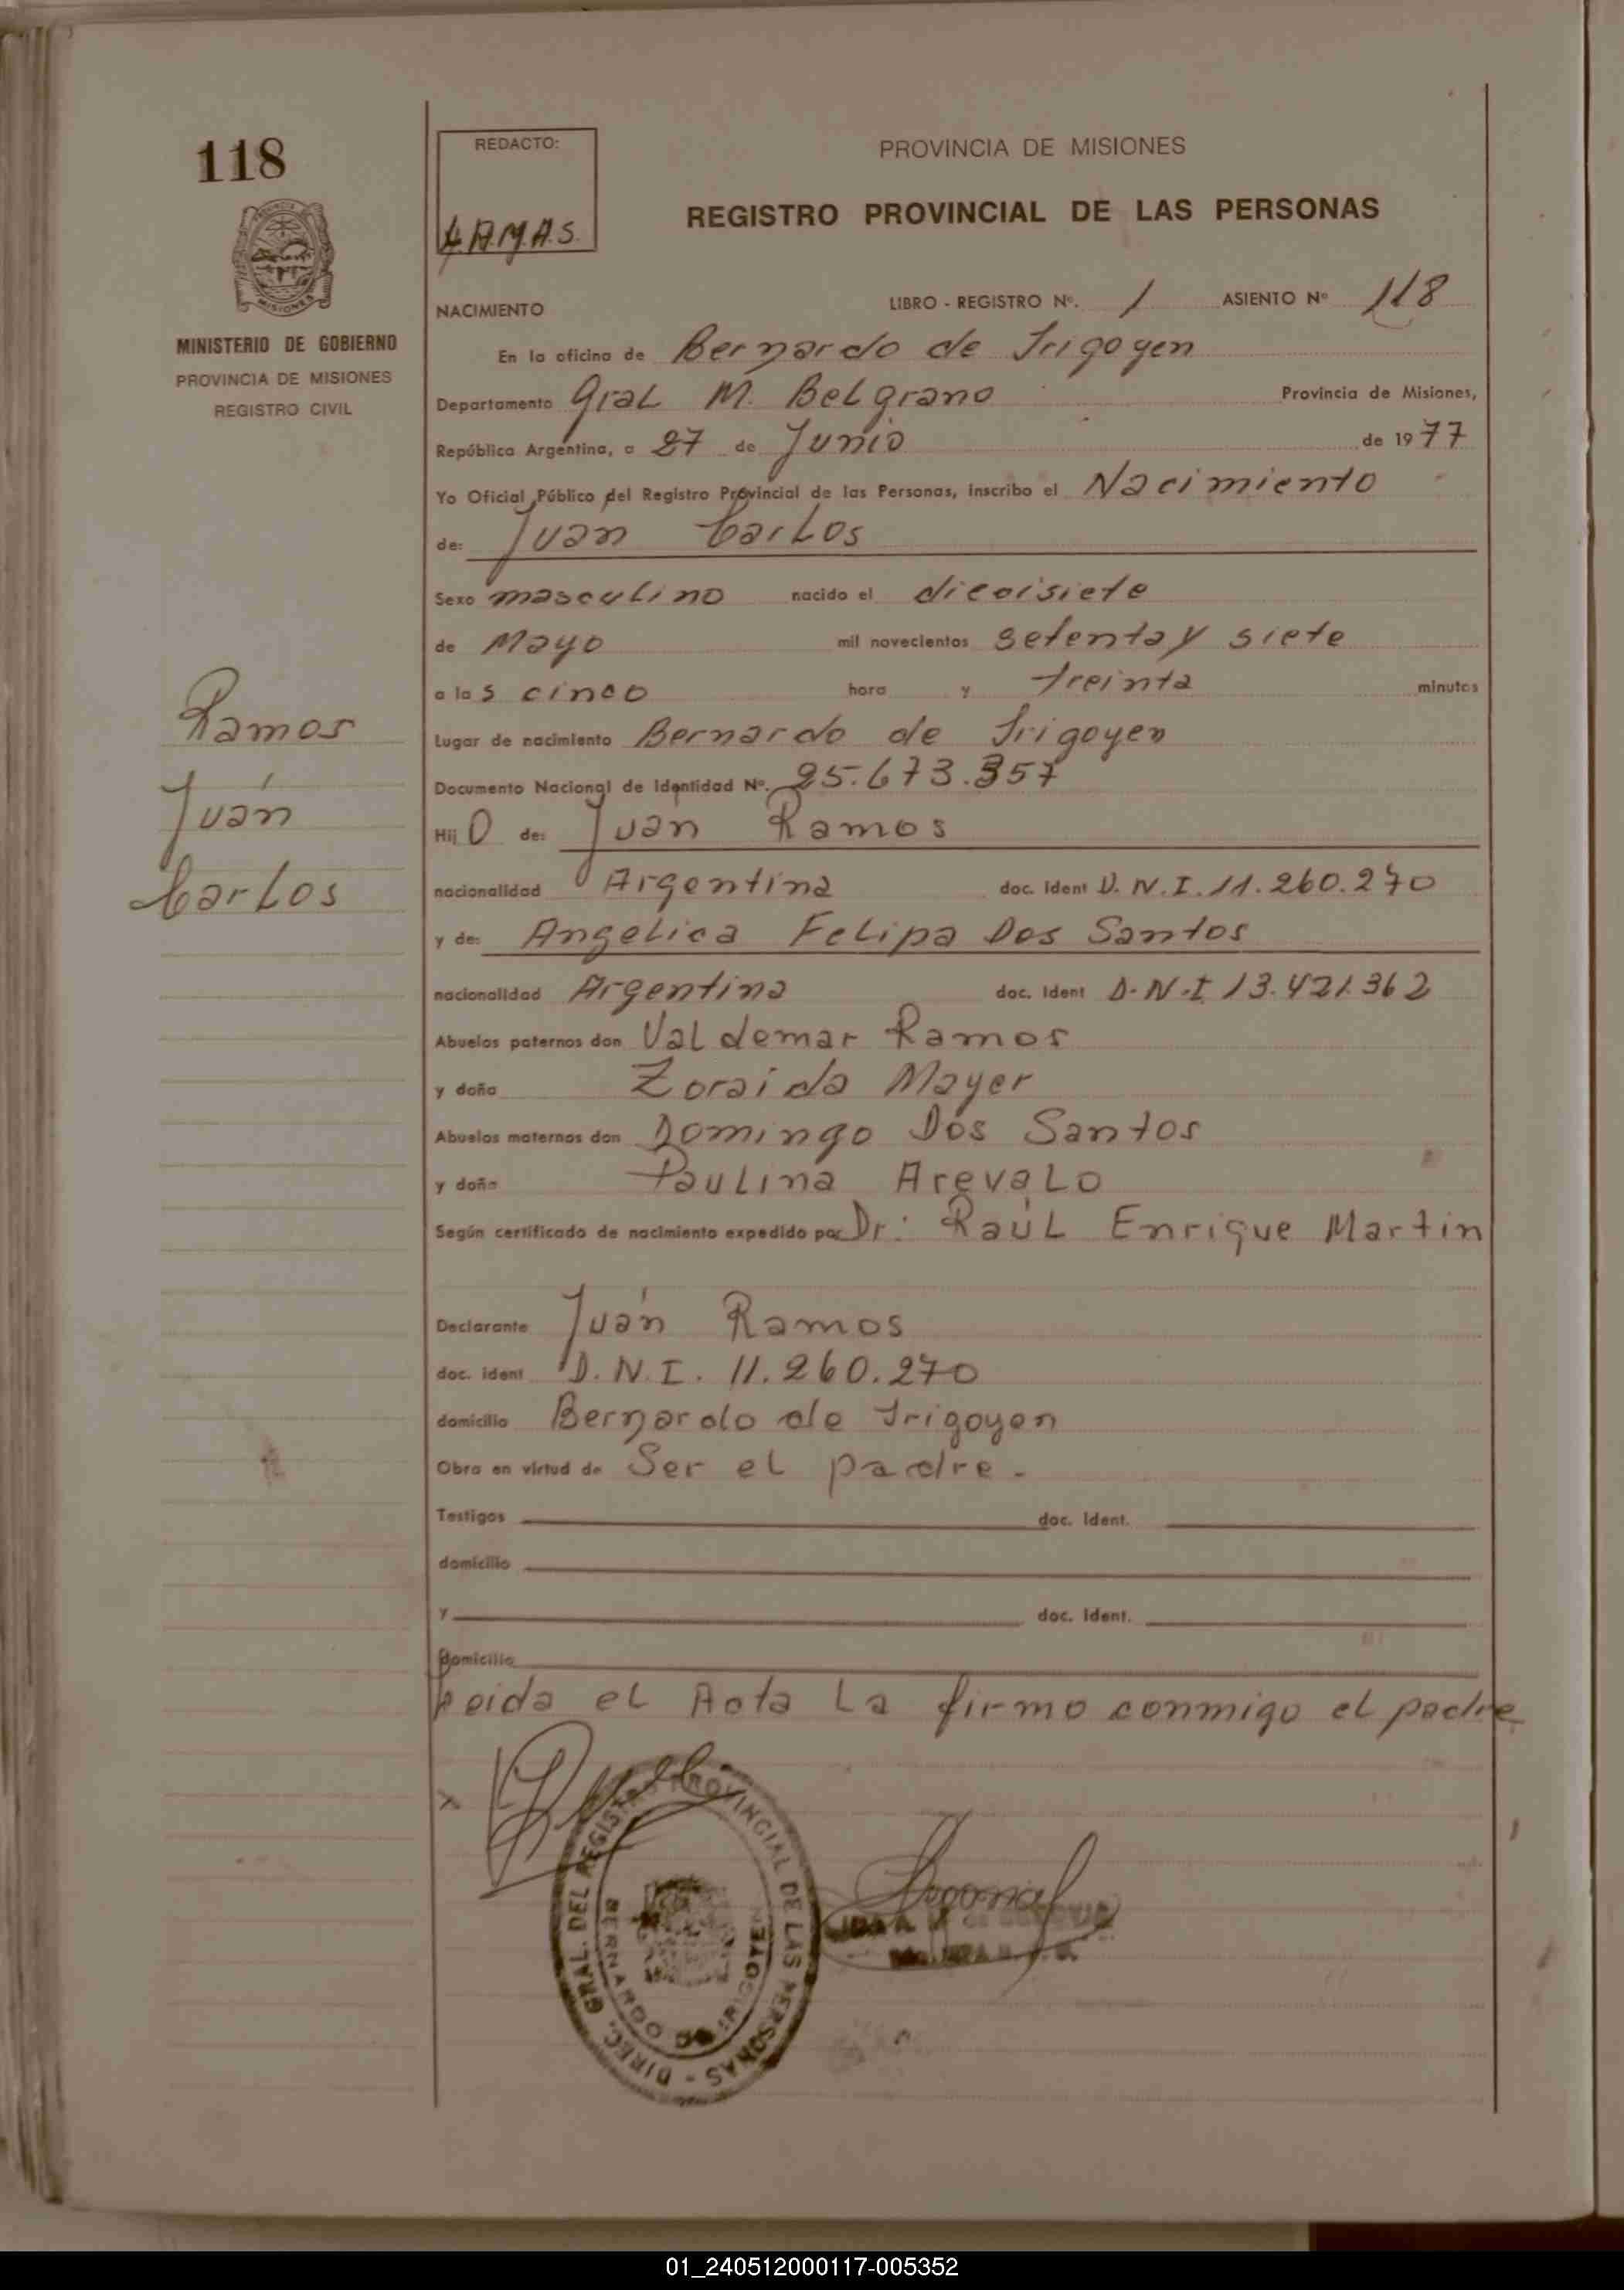 118
REDACTO:
PROVINCIA DE MISIONES
REGISTRO PROVINCIAL DE LAS PERSONAS
MINISTERIO DE GOBIERNO
PROVINCIA DE MISIONES
REGISTRO CIVIL
NACIMIENTO LIBRO - REGISTRO Nº. 1 ASIENTO Nº 118
En la oficina de Bernardo de Irigoyen
Departamento Gral M. Belgrano Provincia de Misiones,
República Argentina, a 27 de Junio de 1977
Yo Oficial Público del Registro Provincial de las Personas, inscribo el Nacimiento
de: Juan Carlos
Sexo masculino nacido el diecisiete
de Mayo mil novecientos setenta y siete
a las cinco hora y treinta minutos
Lugar de nacimiento Bernardo de Irigoyen
Documento Nacional de Identidad Nº. 25.673.357
Hijo de: Juan Ramos
nacionalidad Argentina doc. Ident D.N.I. 11.260.270
y de: Angelica Felipa Dos Santos
nacionalidad Argentina doc. Ident D.N.I 13.421.362
Abuelos paternos don Valdemar Ramos
y doña Zoraida Mayer
Abuelos maternos don Domingo Dos Santos
y doña Paulina Arevalo
Según certificado de nacimiento expedido por Dr: Raúl Enrique Martin
Declarante Juán Ramos
doc. ident D.N.I. 11.260.270
domicilio Bernardo de Irigoyen
Obra en virtud de Ser el padre.
Testigos doc. Ident.
domicilio
y doc. Ident.
domicilio
Leida el Acta La firmo conmigo el padre
Ramos
Juán
Carlos
DIREC. GRAL. DEL REGISTRO PROVINCIAL DE LAS PERSONAS -
BERNARDO DE IRIGOYEN
01_240512000117-005352